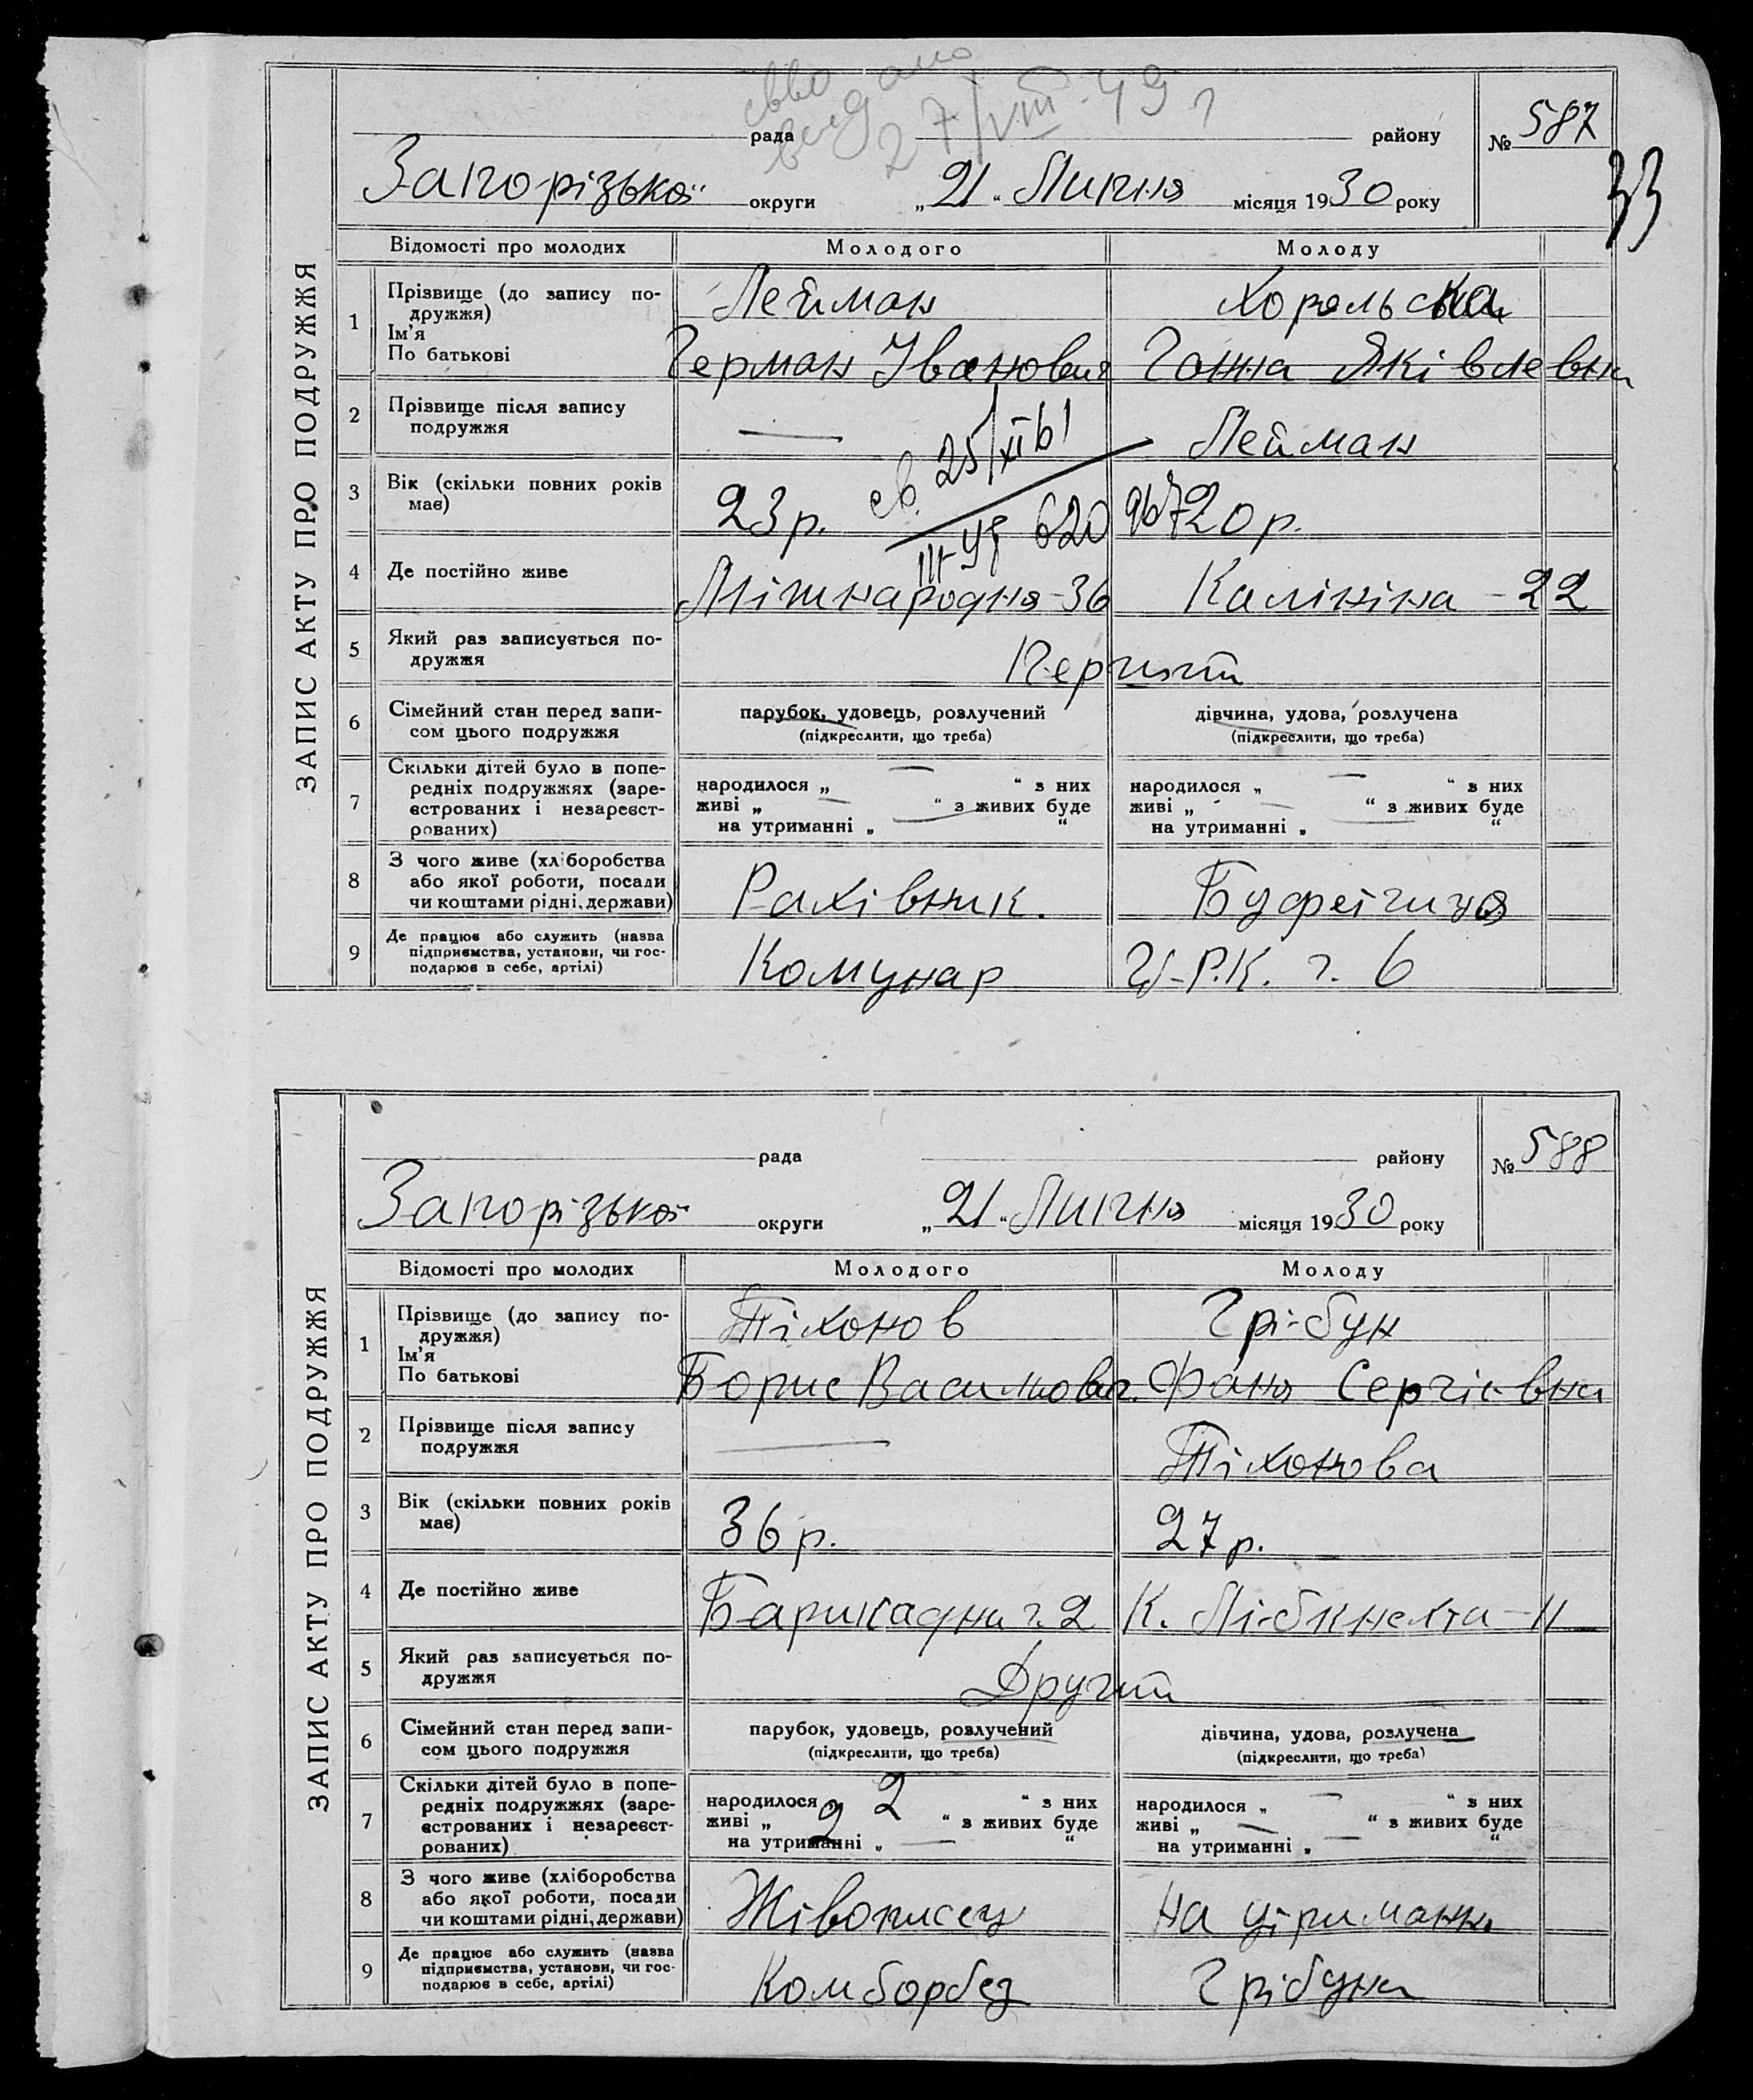 видано
27/VIII-49 г
рада району № 587
33
Запорізької округи „21“ Липня місяця 1930 року
ЗАПИС АКТУ ПРО ПОДРУЖЖЯ
Відомості про молодих Молодого Молоду
1 Прізвище (до запису по-
дружжя)
Ім'я
По батькові
Лейман Хорольська
Герман Іванович Ганна Яківлевна
2 Прізвище після запису
подружжя
— Лейман
св. 25/XI 61
III-УЯ 620967
3 Вік (скільки повних років
має)
23 р. 20 р.
4 Де постійно живе Міжнародня-36 Калініна-22
5 Який раз записується по-
дружжя
Перший
6 Сімейний стан перед запи-
сом цього подружжя
парубок, удовець, розлучений
(підкреслити, що треба)
дівчина, удова, розлучена
(підкреслити, що треба)
7 Скільки дітей було в попе-
редніх подружжях (заре-
єстрованих і незареєст-
рованих)
народилося „ — “ з них
живі „ — “ з живих буде
на утриманні „ — “
народилося „ — “ з них
живі „ — “ з живих буде
на утриманні „ — “
8 З чого живе (хліборобства
або якої роботи, посади
чи коштами рідні, держави)
Рахівник. Буфетчиця
9 Де працює або служить (назва
підприємства, установи, чи гос-
подарює в себе, артілі)
Комунар Ц.Р.К. ч. 6
рада району № 588
Запорізької округи „21“ Липня місяця 1930 року
ЗАПИС АКТУ ПРО ПОДРУЖЖЯ
Відомості про молодих Молодого Молоду
1 Прізвище (до запису по-
дружжя)
Ім'я
По батькові
Тіхонов Грібун
Борис Васильович. Фаня Сергієвна
2 Прізвище після запису
подружжя
— Тіхонова
3 Вік (скільки повних років
має)
36 р. 27 р.
4 Де постійно живе Барикадна ч. 2 К. Лібкнехта-11
5 Який раз записується по-
дружжя
Другий
6 Сімейний стан перед запи-
сом цього подружжя
парубок, удовець, розлучений
(підкреслити, що треба)
дівчина, удова, розлучена
(підкреслити, що треба)
7 Скільки дітей було в попе-
редніх подружжях (заре-
єстрованих і незареєст-
рованих)
народилося 2 “ з них
живі „ 2 “ з живих буде
на утриманні „ — “
народилося „ — “ з них
живі „ — “ з живих буде
на утриманні „ — “
8 З чого живе (хліборобства
або якої роботи, посади
чи коштами рідні, держави)
Жівописец На утриманні
9 Де працює або служить (назва
підприємства, установи, чи гос-
подарює в себе, артілі)
Комборбез Грібуна